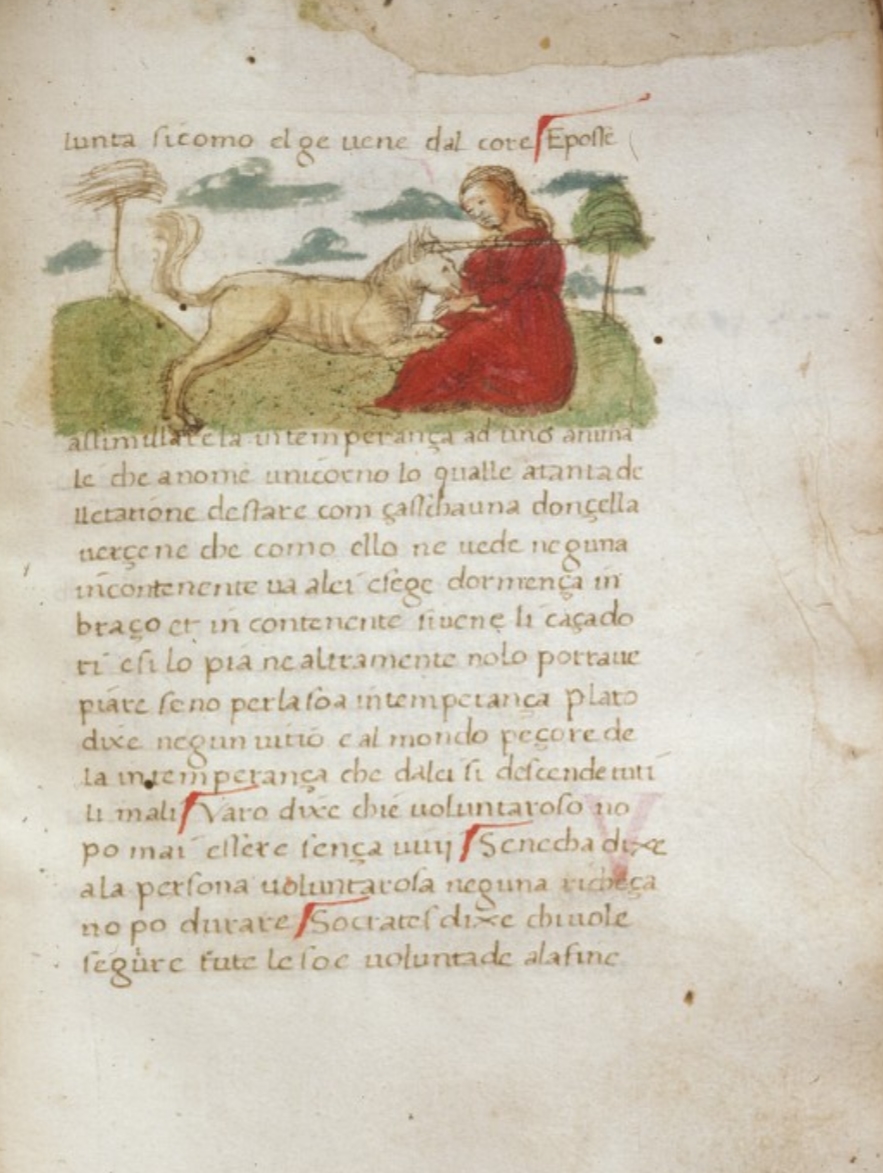 lunta sicomo el ge uene dal core Eposse
assimulare la intemperança ad uno anima
le che a nome unicorno lo qualle atanta de
lletatione de stare com qaschauna donçella
uerçene che como ello ne uede neguna
incontenente ua alei esege dormença in
braço et in contenente si uene li caçado
ri esi lo pia ne altramente nolo porraue
piare se no per la soa intemperança Plato
dixe negun uitio e al mondo peçore de
la intemperança che dalei si descende tuti
li mali Varo dixe chie uoluntaroso no
po mai essere sença uuij Senecha dixe
ala persona uoluntarosa neguna richeça
no po durare Socrates dixe chi uole
segûre tute le soe uoluntade ala fine